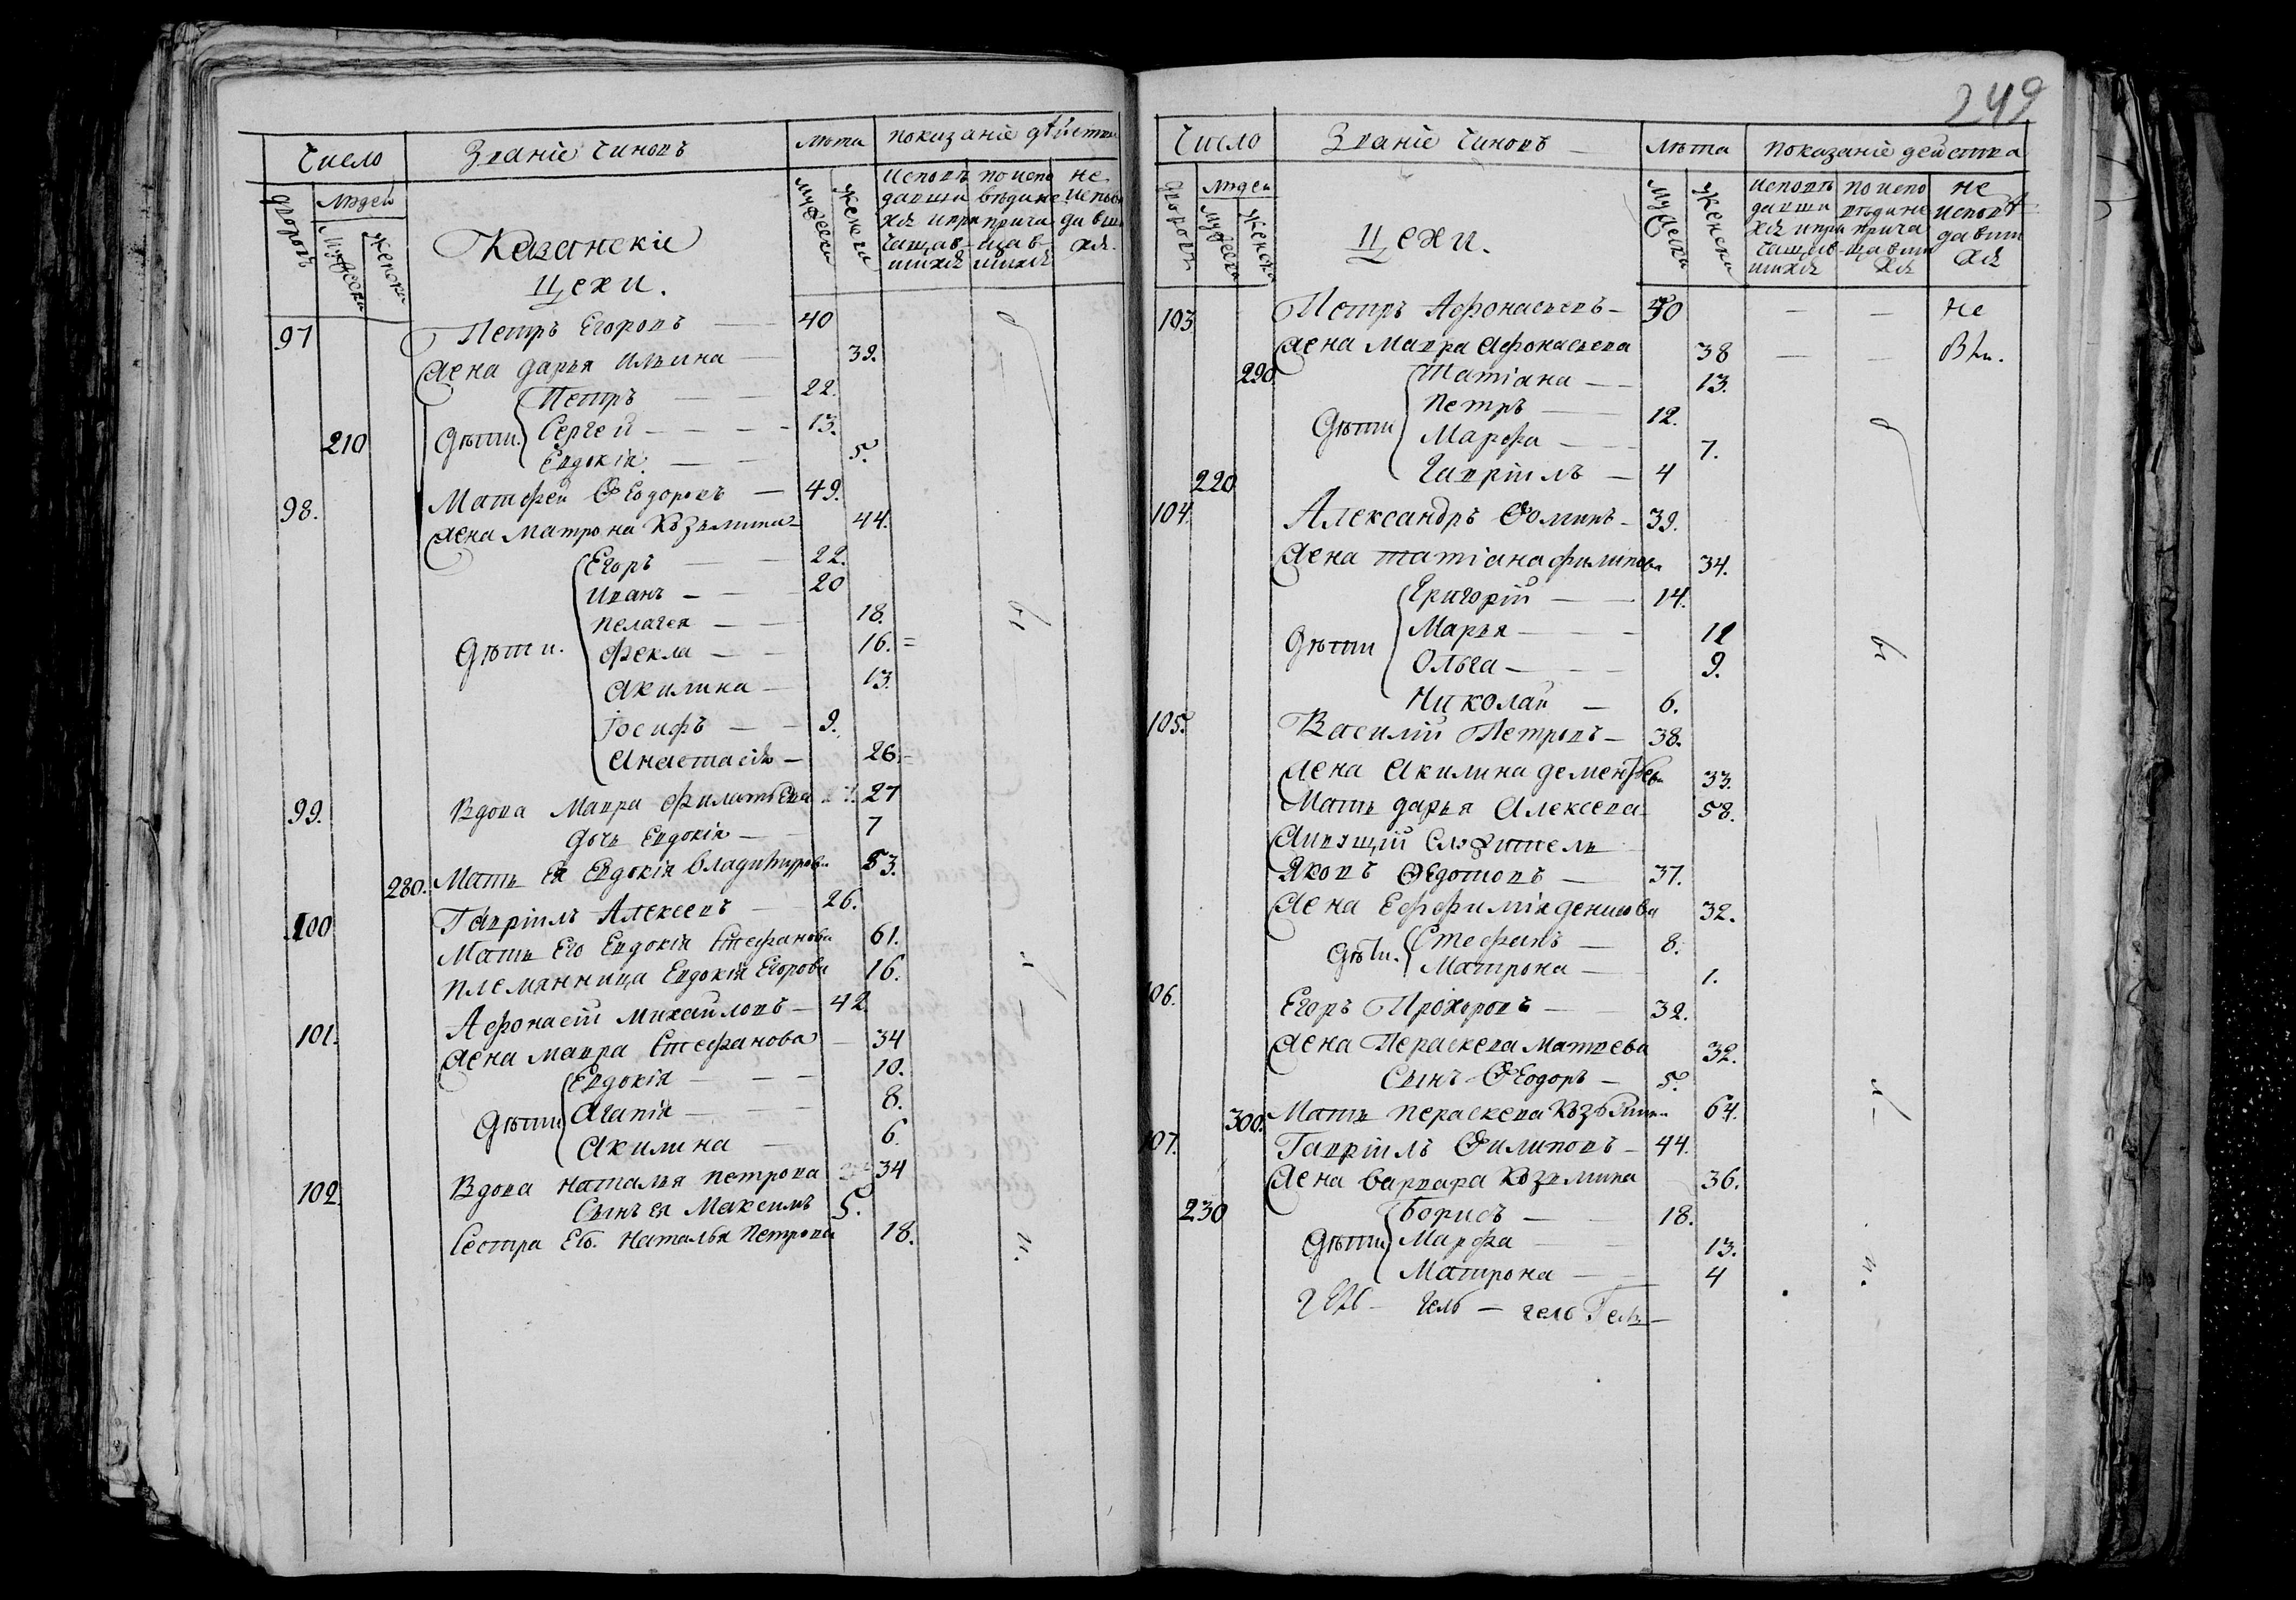 Число Званіе чиновъ лѣта показаніе дѣйства
дворовъ людей мужеска женска мужеска женска
исповѣдавшихся и причащавшихся
по исповѣди не причащавшихся
не исповѣдавшихся
Казанскіе
Цехи.
97 Петръ Егоровъ — 40
жена дарья ильина 39.
Дѣти. Петръ — 22.
210 Сергей — 13.
Евдокія — 5.
98. Матфей Ѳеодоровъ — 49.
жена Матрона Козьмина 44.
Дѣти. Егоръ — 22.
Иванъ — 20
пелагея — 18.
Фекла — 16.
Акилина — 13.
Іосифъ — 9.
Анастасія — 26
99. Вдова Мавра Филатьева 27
Дочь Евдокія — 7
280. Мать Ея Евдокія Владимирова 53.
100 Гавріилъ Алексеевъ — 26.
Мать Его Евдокія Стефанова 61.
племянница Евдокія Егорова 16.
101. Афонасій Михайловъ — 42.
жена мавра Стефанова — 34
Дѣти Евдокія — 10.
Агапія — 8.
Акилина — 6.
102. Вдова наталья петрова 34
Сынъ ея Максимъ 5.
Сестра Ея. Наталья Петрова 18.
249
Число Званіе чиновъ — лѣта показаніе действа
дворовъ людей мужеска женска мужеска женска
исповѣдавшихся и причащавшихся
по исповѣди не причащавшихся
не исповѣдавшихся
Цехи.
103 Петръ Афонасьевъ — 40 — — не
жена Мавра Афонасьева 38 — —
290. Татіана — 13.
Дѣти Петръ — 12.
Марфа — 7.
220 Гавріилъ — 4
104. Александръ Ѳоминъ — 39.
жена татіана филипова 34.
Дѣти Григорій — 14.
Марья — 12
Ольга — 9.
Николай — 6.
105. Василій Петровъ — 38.
жена Акилина дементьева 33.
Мать дарья Алексеева 58.
Яковъ Ѳедотовъ — 37.
жена Ефримія денисова 32.
Дѣти. Стефанъ — 8.
Матрона — 1.
106. Егоръ Прохоровъ — 32.
жена Параскева Матвева 32.
Сынъ Ѳеодоръ — 5.
300. Мать параскева Козьмина 64.
107. Гавріилъ Филиповъ — 44.
жена варвара Козьмина 36.
230 Борисъ — 18.
Дѣти Марфа — 13.
Матрона — 4